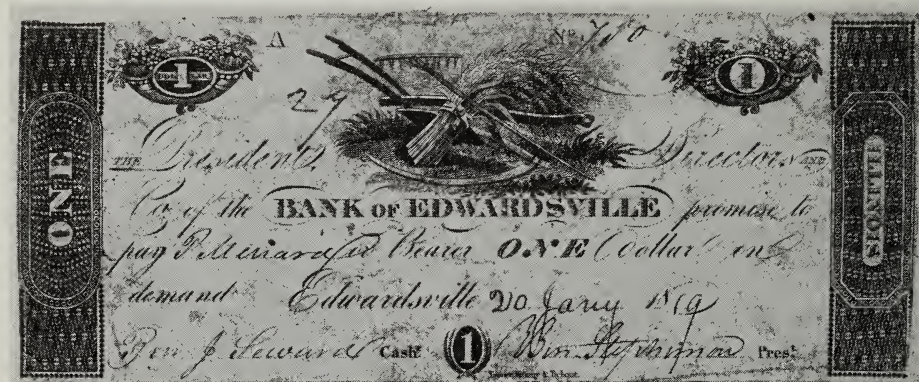 A No. 750
1 DOLLAR
1
27
THE President, Directors AND
Co. of the BANK OF EDWARDSVILLE promise to
pay P. Menard or Bearer ONE Dollar on
demand Edwardsville 20 Jany 1819
Ben. J. Seward Cashr. 1 Wm. Stephenson Prest.
ONE
ILLINOIS